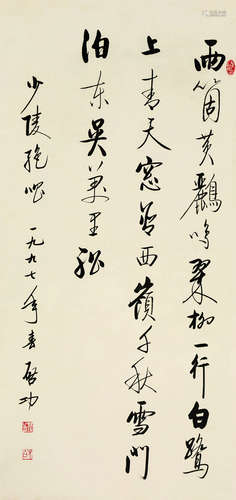 两箇黄鸝鸣翠柳一行白鹭
上青天窓含西岭千秋雪门
泊东吴万里船
少陵绝唱 一九九七年春 启功